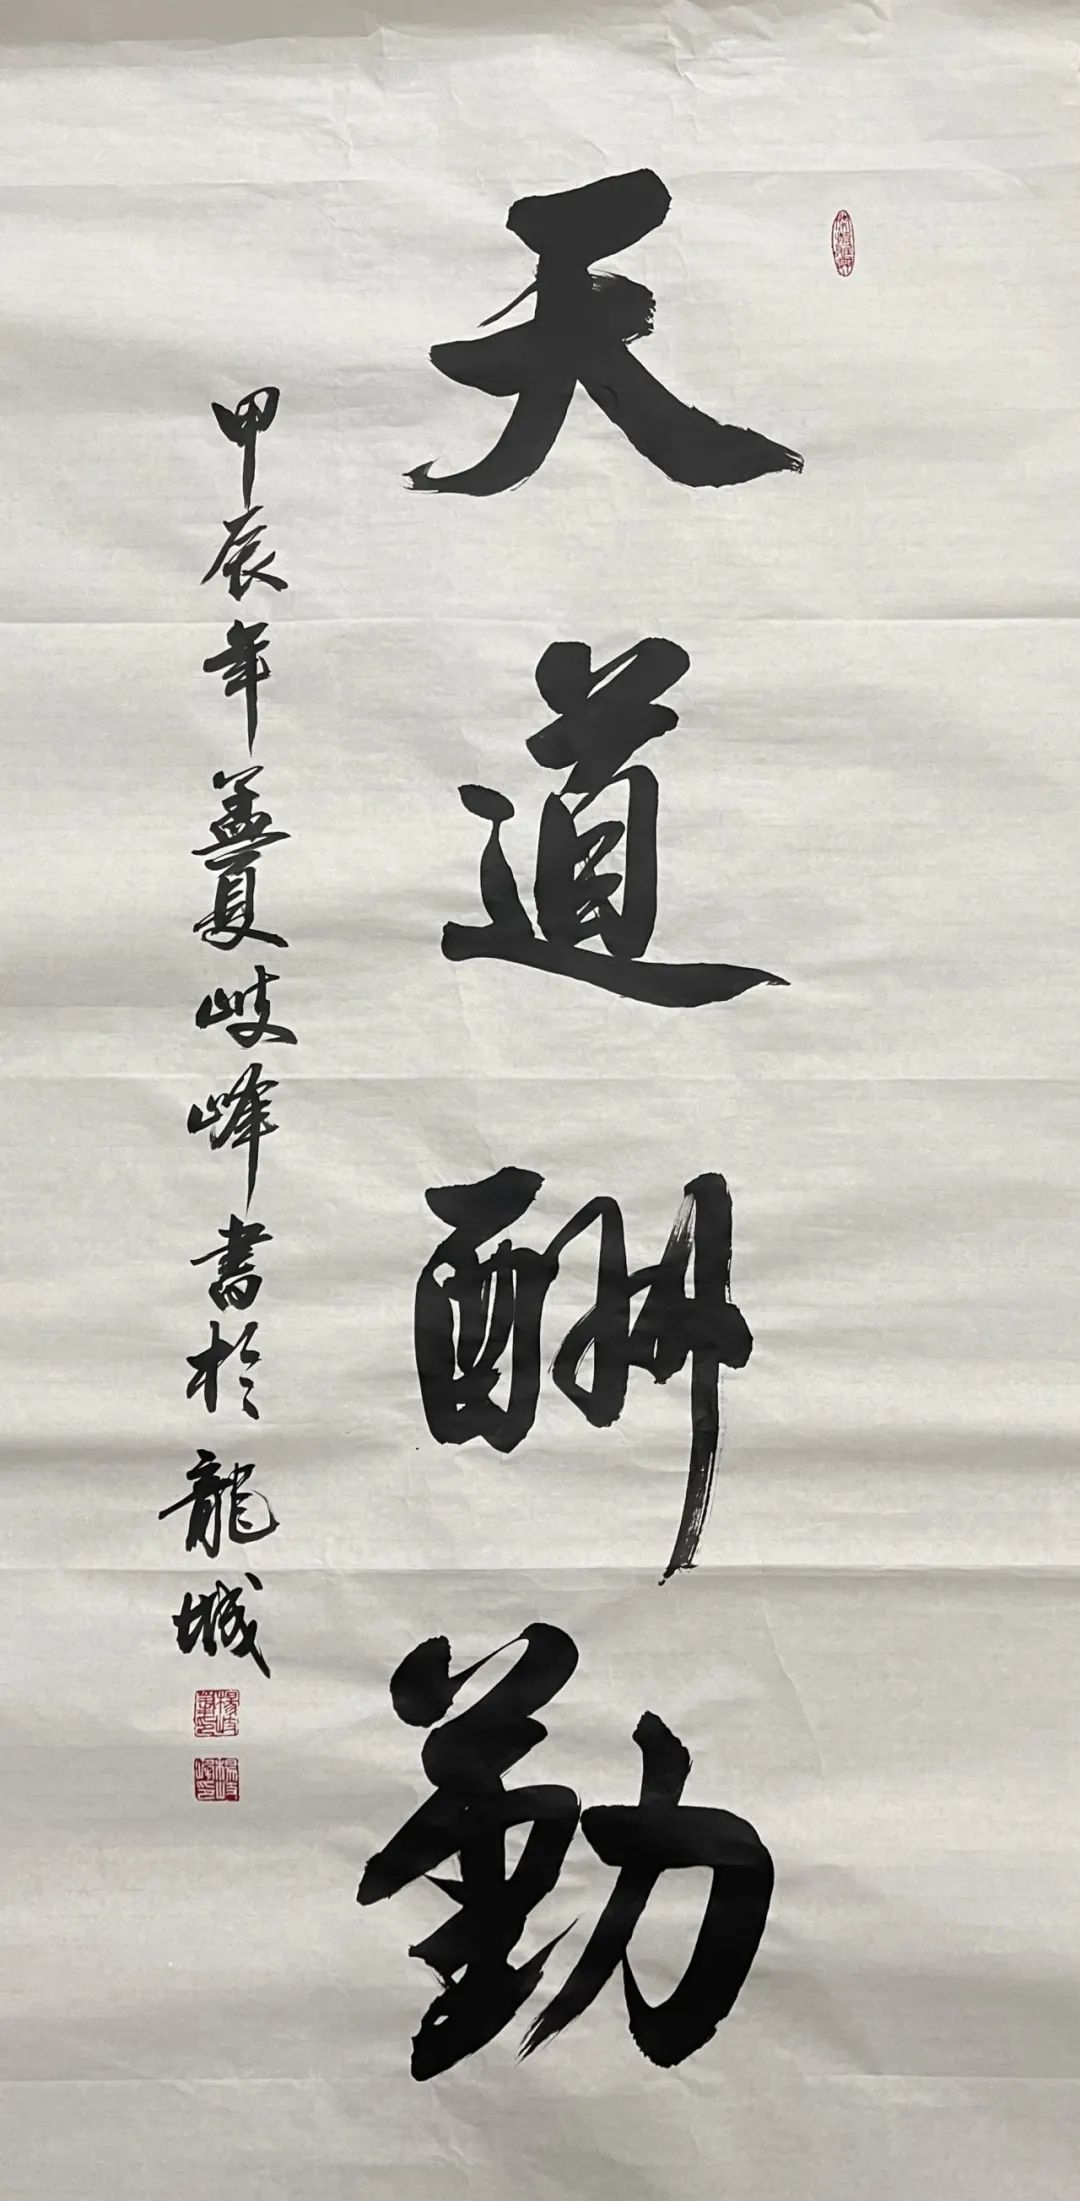 天道酬勤
甲辰年孟夏岐峰書於龍城